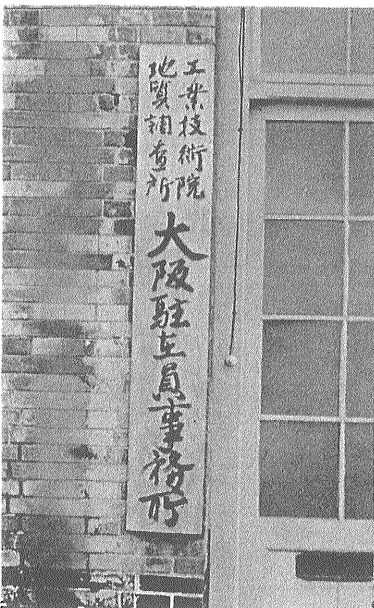 工業技術院
地質調査所
大阪駐在員事務所